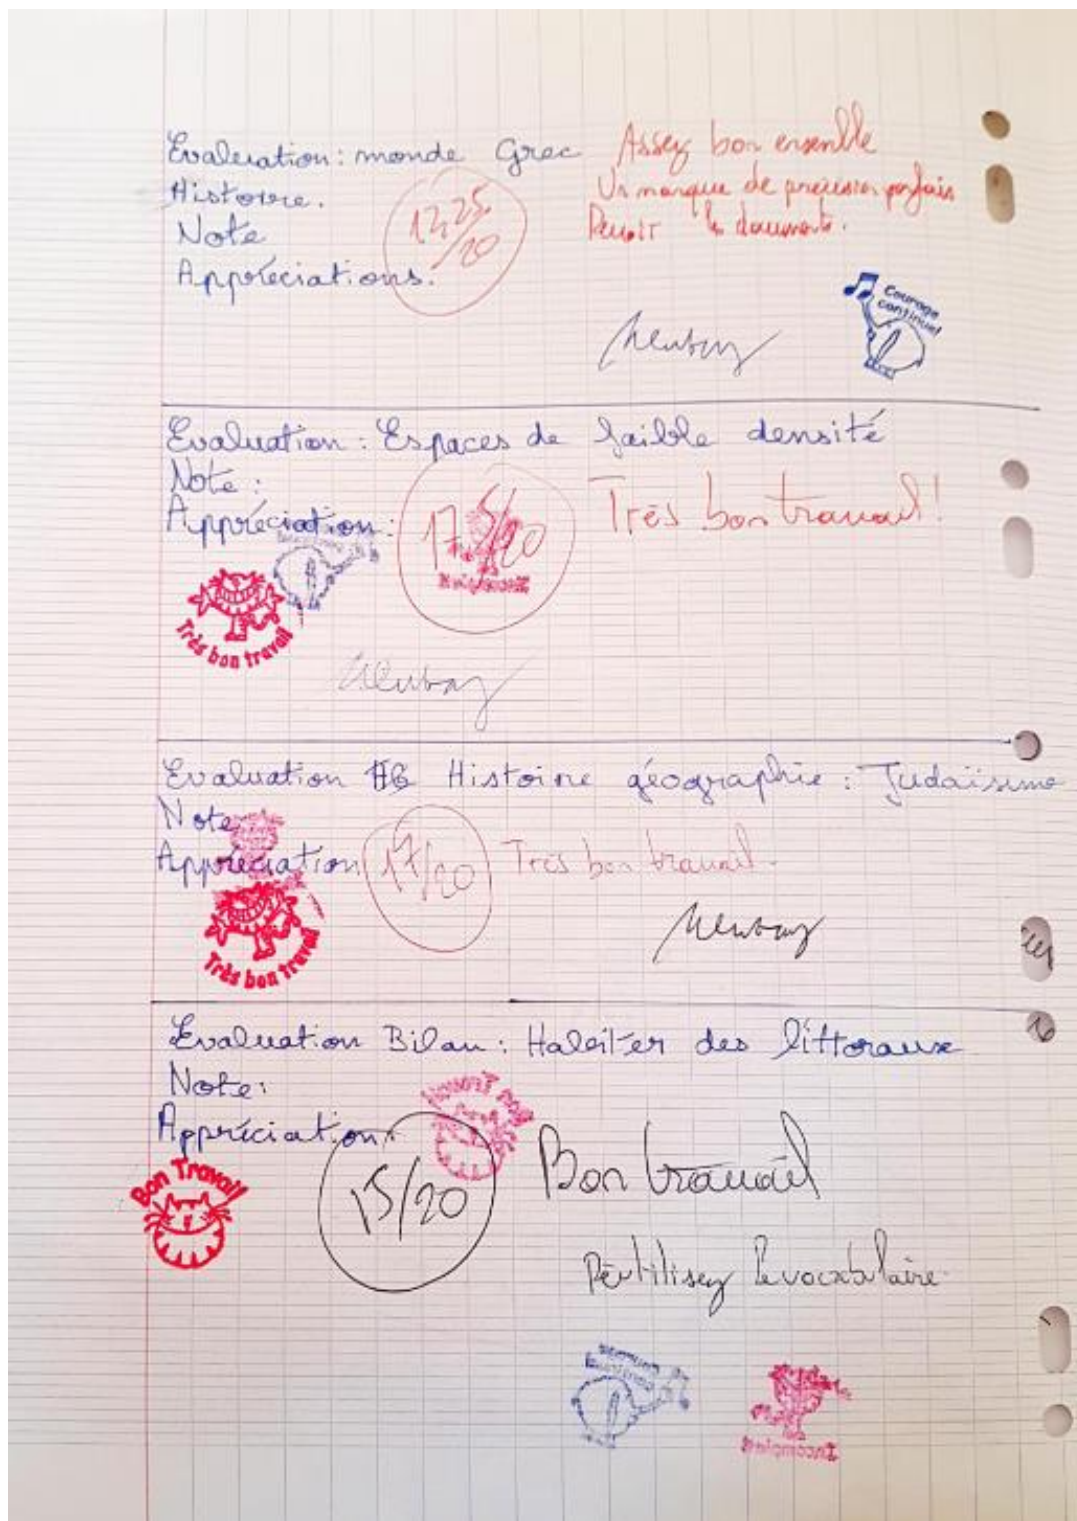 Evaluation : monde Grec
Histoire.
Note
Appréciations.
12,25/20
Assez bon ensemble
Un manque de précision parfois
Revoir les documents.
Courage continue!
Evaluation : Espaces de faible densité
Note :
Appréciation :
17,5/20
Très bon travail!
Incomplet
Très bon travail
Evaluation #6 Histoire géographie : Judaïsme
Note
Appréciation
17/20
Très bon travail.
Très bon travail
Evaluation Bilan : Habiter des littoraux
Note :
Appréciation :
15/20
Bon Travail
Bon travail
Bon Travail
Réutilisez le vocabulaire.
Courage continue!
Incomplet